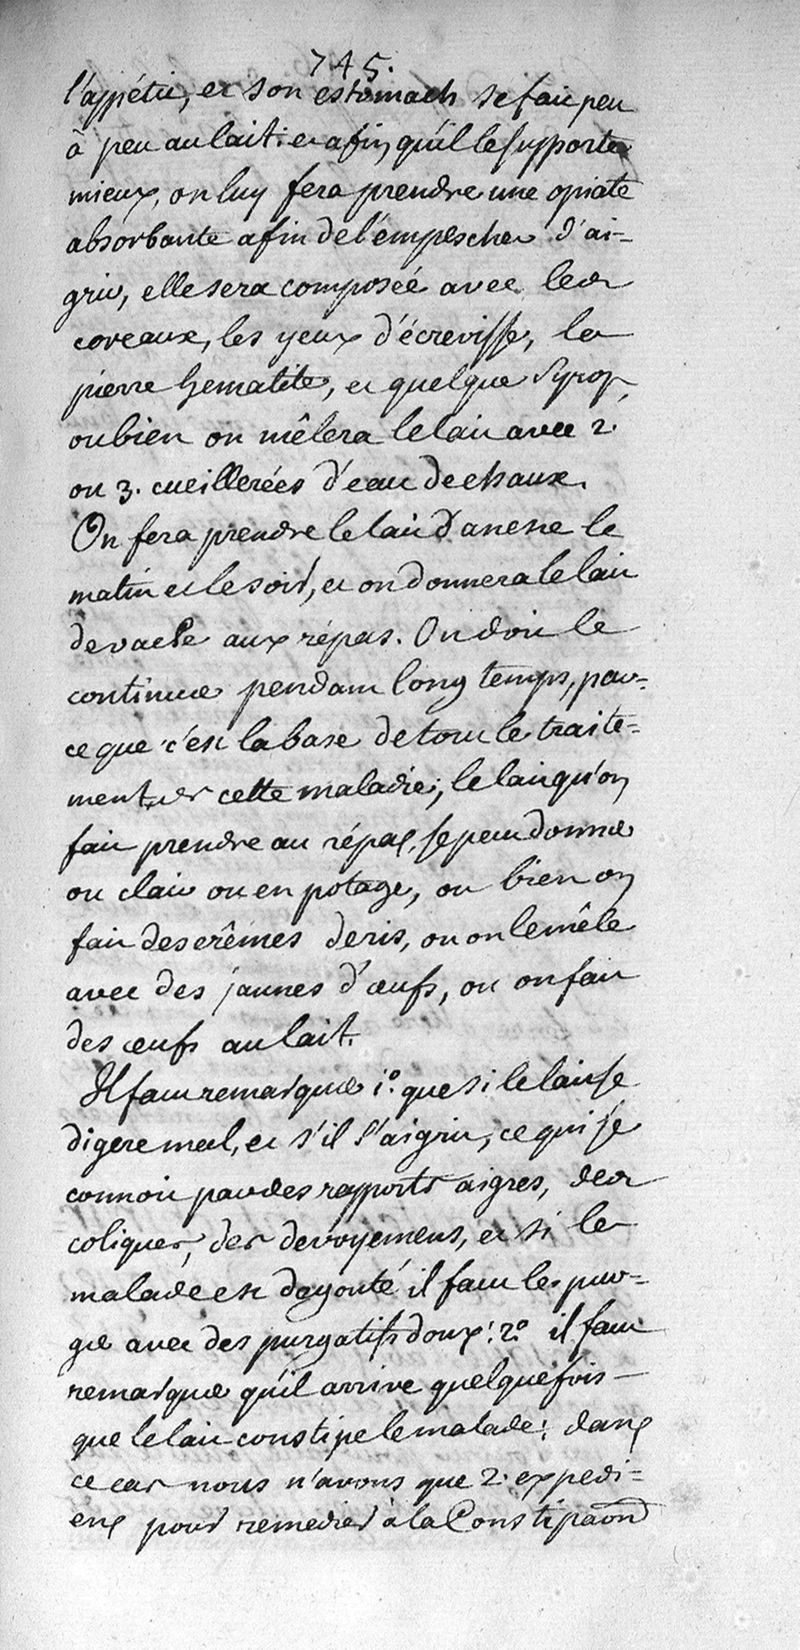 745.
l'appétit, et son estomach se fait peu
à peu au lait: et afin qu'il le supporte
mieux, on luy fera prendre une opiate
absorbante afin de l'empescher d'ai=
grir, elle sera composée avec les
coreaux, les yeux d'écrevisse, la
pierre hematite, et quelque syrop,
ou bien on mêlera le lait avec 2.
ou 3. cueillerées d'eau de chaux.
On fera prendre le lait d'anesse le
matin et le soir, et on donnera le lait
de vache aux répas. On doit le
continuer pendant long temps, par=
ce que c'est la base de tout le traite=
ment de cette maladie; le lait qu'on
fait prendre au répas, se peut donner
ou clair ou en potage, ou bien on
fait des crêmes de ris, ou on le mêle
avec des jaunes d'œufs, ou on fait
des œufs au lait.
Il faut remarquer 1.º que si le lait se
digere mal, et s'il s'aigrit, ce qui se
connoit par des rapports aigres, des
coliques, des devoyemens, et si le
malade est dégouté, il faut le pur=
ger avec des purgatifs doux: 2.º il faut
remarquer qu'il arrive quelquefois
que le lait constipe le malade: dans
ce cas nous n'avons que 2. expedi=
ens pour remedier à la Constipaõn